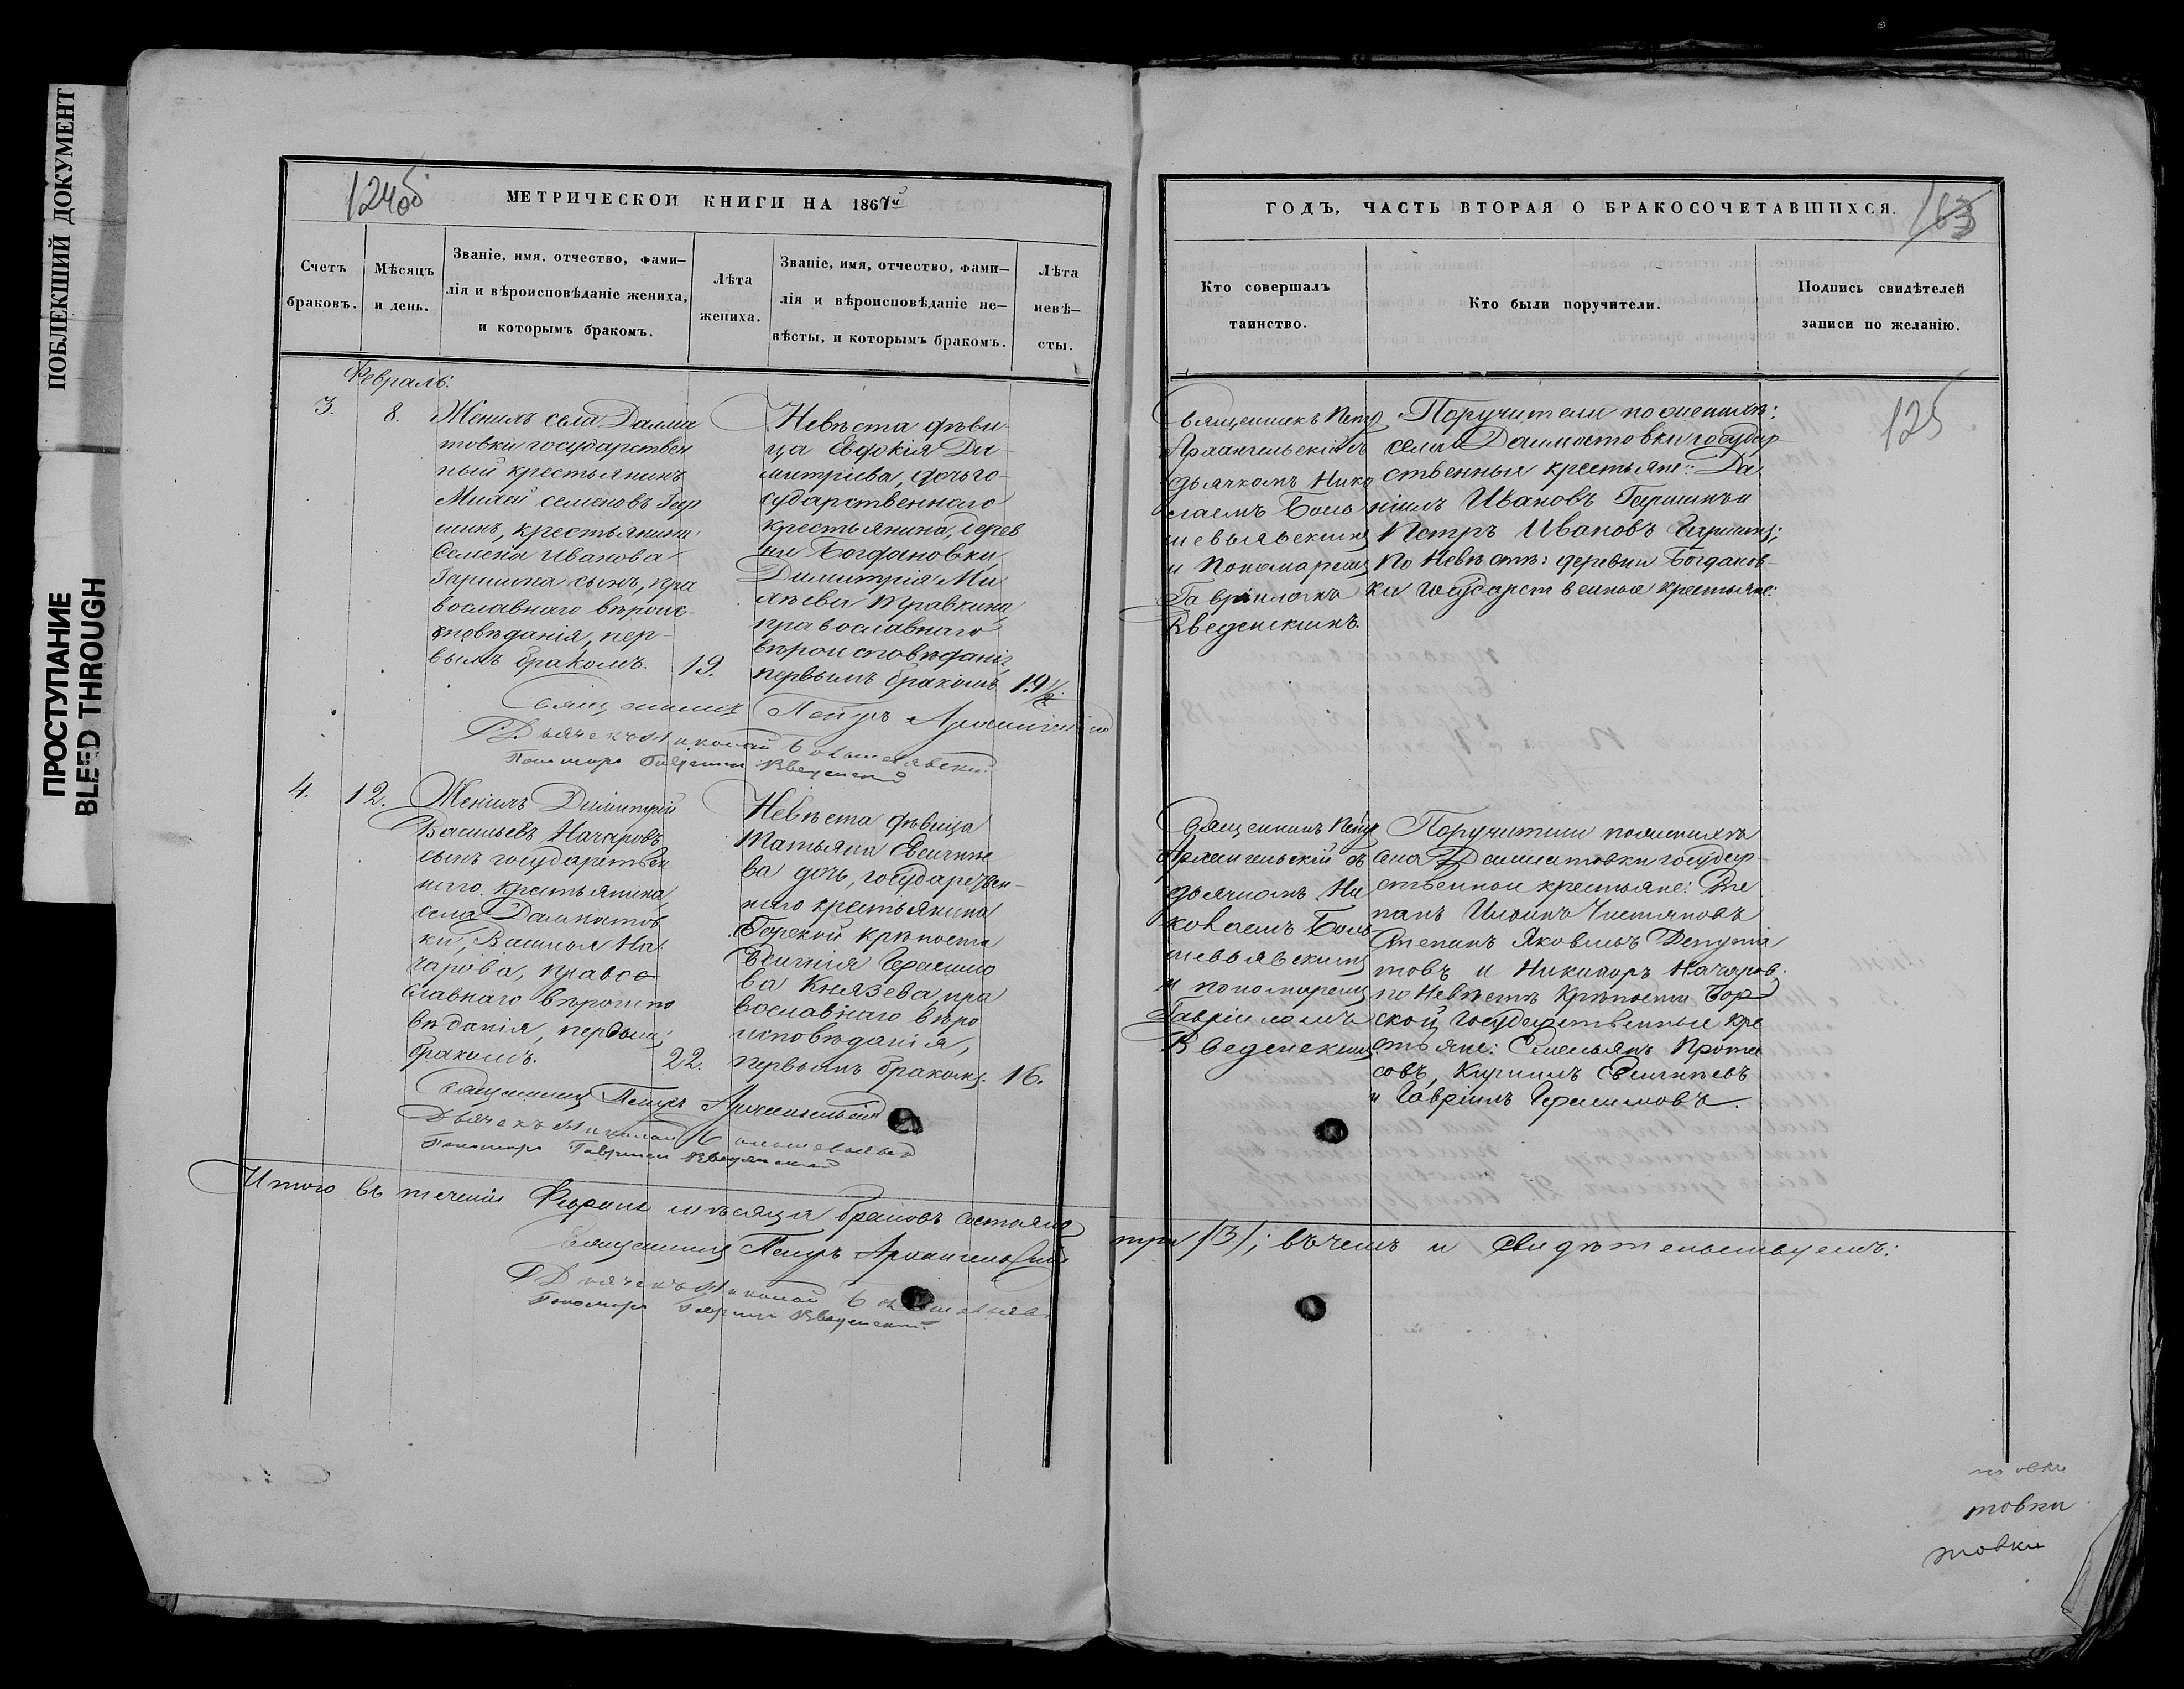 ПОБЛЕКШИЙ ДОКУМЕНТ
ПРОСТУПАНИЕ
BLEED THROUGH
124об
МЕТРИЧЕСКОЙ КНИГИ НА 1867й
Счетъ браковъ.
Мѣсяцъ и день.
Званіе, имя, отчество, фами-
лія и вѣроисповѣданіе жениха,
и которымъ бракомъ.
Лѣта жениха.
Званіе, имя, отчество, фами-
лія и вѣроисповѣданіе не-
вѣсты, и которымъ бракомъ.
Лѣта невѣ-
сты.
Февраль.
3.
8.
Женихъ села Далма
товки государствен
ный крестьянинъ
Михей Семеновъ Гар
шинъ, крестьянина
Семена Иванова
Гаршина сынъ, пра
вославнаго вѣроис-
повѣданія, пер-
вымъ бракомъ.
19.
Невѣста дѣви
ца Евдокія Ди
митріева, дочь го-
сударственнаго
крестьянина, дерев
ни Богдановки,
Димитрія Ми
хѣева Травкина
православнаго
вѣроисповѣданія,
первымъ бракомъ
19½.
Священникъ Петръ Архангельскій
Дьячекъ Николай Большевьявскій
Пономарь Гавріилъ Введенскій
4.
12.
Женихъ Димитрій
Васильевъ Начаровъ
сынъ государствен
наго крестьянина
села Далматов
ки, Василья На
чарова, правос
лавнаго вѣроиспо
вѣданія, первымъ
бракомъ.
22.
Невѣста дѣвица
Татьяна Евсигнѣе
ва дочь, государствен-
наго крестьянина
Борской крѣпости
Евсигнія Герасимо
ва Князева, пра
вославнаго вѣро
исповѣданія,
первымъ бракомъ.
16.
Священникъ Петръ Архангельскій
Дьячекъ Николай Большевьявскій
Пономарь Гавріилъ Введенскій
Итого въ теченіи Февраля мѣсяца браковъ состояло
Священникъ Петръ Архангельскій
Дьячекъ Николай
Пономарь Гавріилъ Введенскій
ГОДЪ, ЧАСТЬ ВТОРАЯ О БРАКОСОЧЕТАВШИХСЯ.
163
Кто совершалъ
таинство.
Кто были поручители.
Подпись свидѣтелей
записи по желанію.
125
Священникъ Петръ
Архангельскій съ
дьячкомъ Нико
лаемъ Боль
шевьявскимъ
и Пономаремъ
Гавріиломъ
Введенскимъ.
Поручители по женихѣ:
села Далматовки государ
ственные крестьяне: Да
ніилъ Ивановъ Гаршинъ и
Петръ Ивановъ Гаршинъ;
по Невѣстѣ: деревни Богданов-
ки государственные крестьяне:
Священникъ Петръ
Архангельскій съ
дьячкомъ Ни
колаемъ Боль
шевьявскимъ
и пономаремъ
Гавріиломъ
Введенскимъ.
Поручители по женихѣ
села Далматовки государ-
ственные крестьяне: Сте
панъ Чистяковъ
Степанъ Яковлевъ Депута
товъ и Никифоръ Начаровъ;
по Невѣстѣ Крѣпости Бор
ской государственные кре
стьяне: Емельянъ Прота
совъ, Кириллъ Евсигнѣевъ
и Гавріилъ Герасимовъ.
три /3/; въ чемъ и свидѣтельствуемъ:
товки
товки
товки